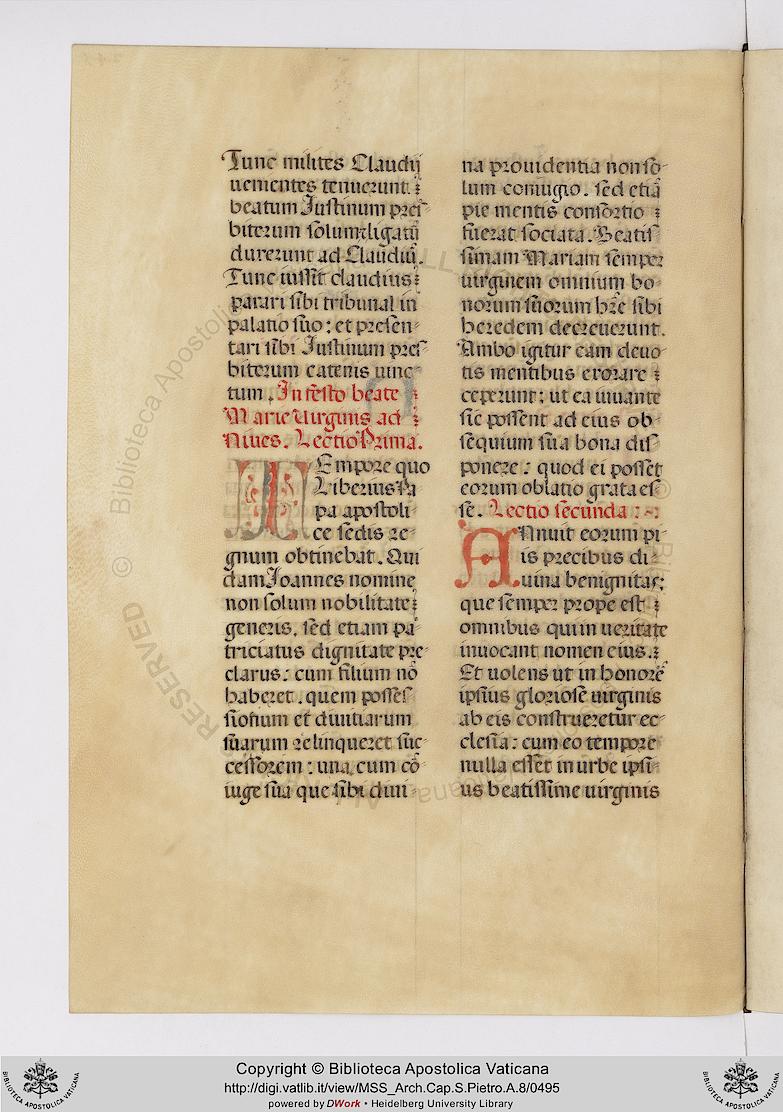 Tunc milites Claudij
uementes tenuerunt :
beatum Justinum pres-
biterum solumqꝫ ligatū
duxerunt ad Claudiū.
Tunc iussit claudius :
parari sibi tribunal in
palatio suo : et presen-
tari sibi Justinum pres-
biterum catenis uinc-
tum . In festo beate
Marie Uirginis ad :
Niues. Lectio Prima.
TEmpore quo
Liberius Pa
pa apostoli
ce sedis re-
gnum obtinebat . Qui
dam Joannes nomine
non solum nobilitate :
generis, sed etiam pa-
triciatus dignitate pre-
clarus : cum filium nō
haberet . quem posses-
sionum et diuitiarum
suarum relinqueret suc-
cessorem : una cum cō-
iuge sua que sibi diui-
na prouidentia non so-
lum coniugio . sed etiā
pie mentis consortio :
fuerat sociata . Beatis-
simam Mariam semper
uirginem omnium bo-
norum suorum hr̄e sibi
heredem decreuerunt.
Ambo igitur eam deuo-
tis mentibus exorare :
ceperunt : ut ea iuuante
sic possent ad eius ob-
sequium sua bona dis-
ponere : quod ei posset
eorum oblatio grata es-
se . Lectio secunda :~
ANnuit eorum pi-
is precibus di-
uina benignitas :
que semper prope est :
omnibus qui in ueritate
inuocant nomen eius . :
Et uolens ut in honorē
ipsius gloriose uirginis
ab eis construeretur ec-
clesia : cum eo tempore
nulla esset in urbe ipsi-
us beatissime uirginis
© Biblioteca Apostolica
RESERVED
Copyright © Biblioteca Apostolica Vaticana
http://digi.vatlib.it/view/MSS_Arch.Cap.S.Pietro.A.8/0495
powered by DWork • Heidelberg University Library
BIBLIOTECA APOSTOLICA VATICANA
BIBLIOTECA APOSTOLICA VATICANA